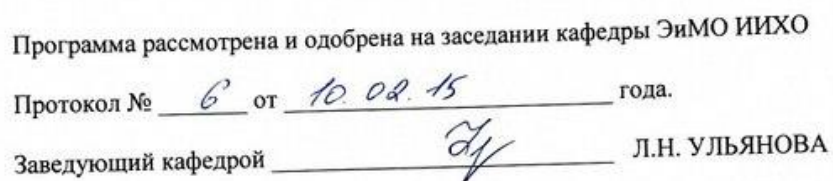 Программа рассмотрена и одобрена на заседании кафедры ЭиМО ИИХО
Протокол № 6 от 10.02.15 года.
Заведующий кафедрой Л.Н. УЛЬЯНОВА